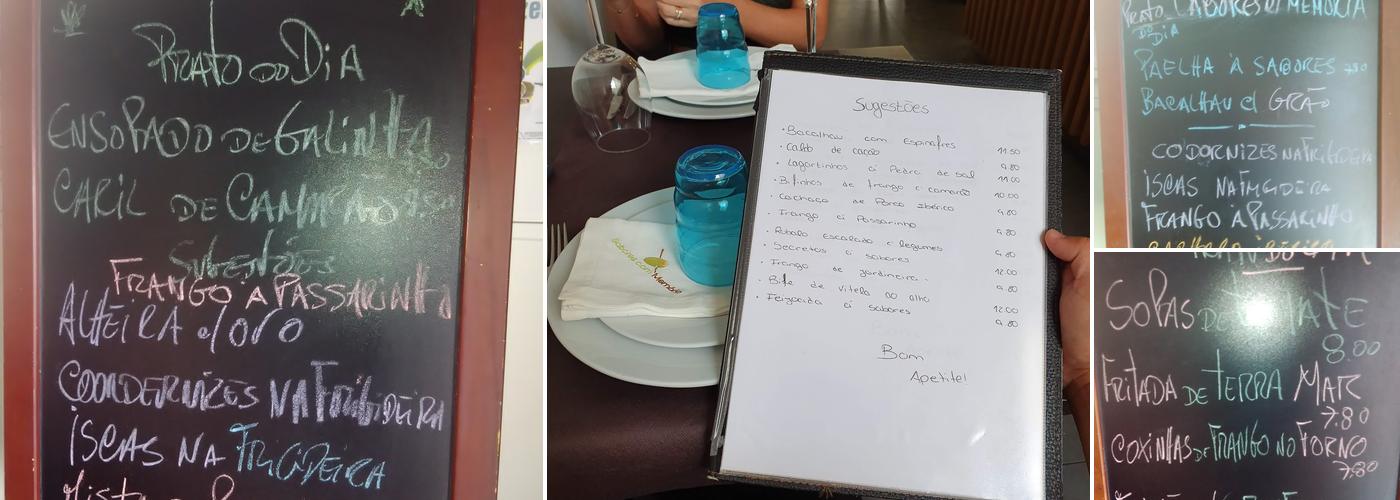 PRATO DO DIA
ENSOPADO DE GALINHA
CARIL DE CAMARÃO
SUGESTÕES
FRANGO À PASSARINHO
ALHEIRA c/ OVO
COORDERNIZES NA FRIGIDEIRA
ISCAS NA FRIGIDEIRA
Sugestões
• Bacalhau com Espinafres 11.50
• Caldo de cação 9.80
• Lagartinhos à Pedra de sal 11.00
• Bifinhos de frango e camarão 10.00
• Cachaço de Porco Ibérico 9.80
• Frango à Passarinho 9.80
• Robalo Escalado e legumes
• Secretos à sabores 9.80
• Frango de jardineira 12.00
• Bife de Vitela ao alho 9.80
• Feijoada à sabores 12.00
9.80
Bom
Apetite!
Sabores com Memória
PRATO SABORES D/ MEMÓRIA
DO DIA
PAELHA À SABORES 7.80
BACALHAU c/ GRÃO
CODORNIZES NA FRIGIDEIRA
ISCAS NA FRIGIDEIRA
FRANGO À PASSARINHO
SOPAS DE TOMATE
8.00
FRITADA DE TERRA MAR
7.80
COXINHAS DE FRANGO NO FORNO
7.80